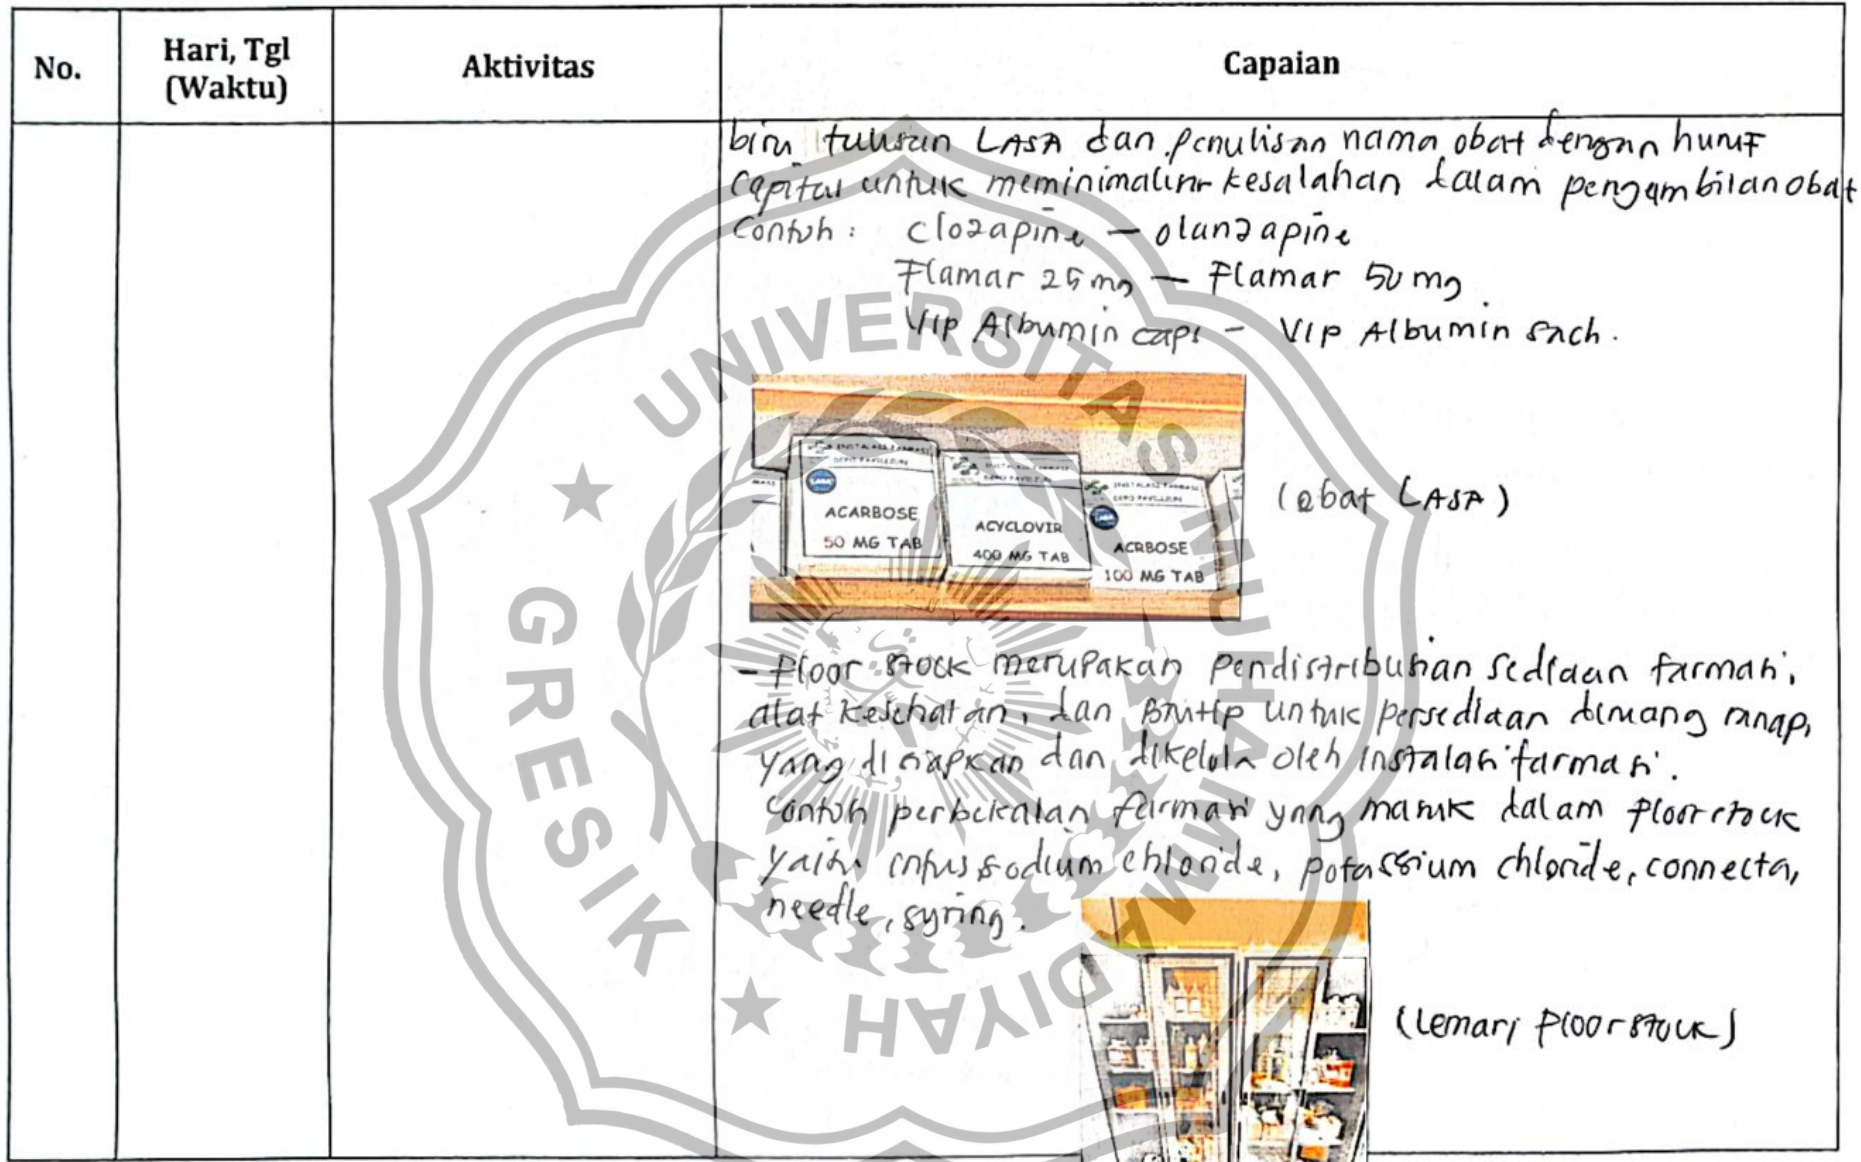 No.
Hari, Tgl
(Waktu)
Aktivitas
Capaian
biru tulisan LASA dan penulisan nama obat dengan huruf
Capital untuk meminimalisir kesalahan dalam pengambilan obat
Contoh : clozapine — olanzapine
Flamar 25 mg — Flamar 50 mg
VIP Albumin caps - VIP Albumin sach.
INSTALASI FARMASI
DEPO PAVILIUN
LASA
ACARBOSE
50 MG TAB
INSTALASI FARMASI
DEPO PAVILIUN
ACYCLOVIR
400 MG TAB
INSTALASI FARMASI
DEPO PAVILIUN
LASA
ACRBOSE
100 MG TAB
(obat LASA)
- Floor stock merupakan pendistribusian sediaan farmasi,
alat kesehatan, dan BMHP untuk persediaan diruang ranap,
yang disiapkan dan dikelola oleh instalasi farmasi.
contoh perbekalan farmasi yang masuk dalam floor stock
yaitu infus sodium chloride, potassium chloride, connecta,
needle, syring.
(Lemari floor stock)
UNIVERSITAS MUHAMMADIYAH
GRESIK